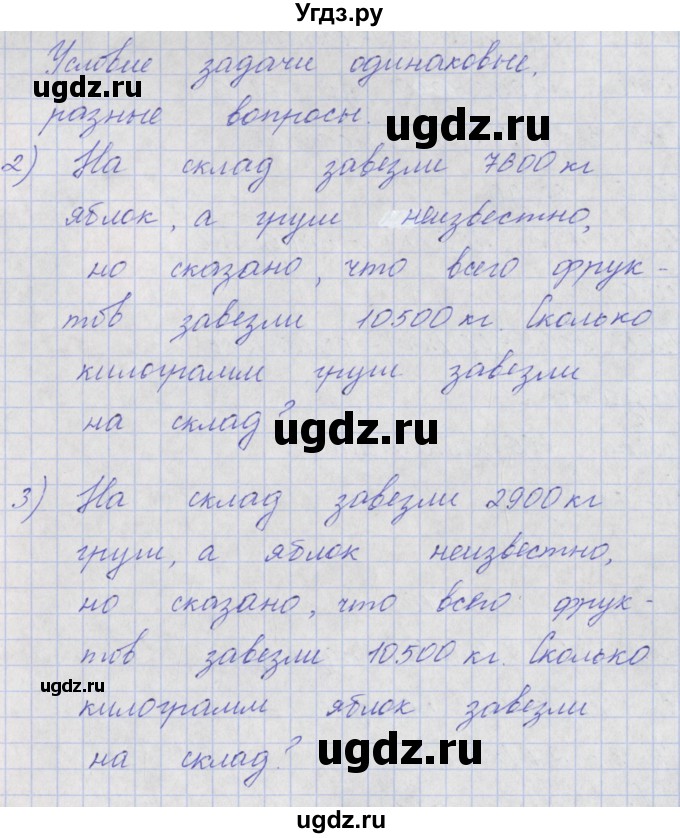 Угдз.ру
Условие задачи одинаковые,
разные вопросы.
ugdz.ru
ugdz.ru
2) На склад завезли 7600 кг
яблок, а груш неизвестно,
но сказано, что всего фрук-
тов завезли 10500 кг. Сколько
килограмм груш завезли
на склад?
ugdz.ru
3) На склад завезли 2900 кг
груш, а яблок неизвестно,
но сказано, что всего фрук-
тов завезли 10500 кг. Сколько
ugdz.ru
килограмм яблок завезли
на склад?
ugdz.ru
ugdz.ru